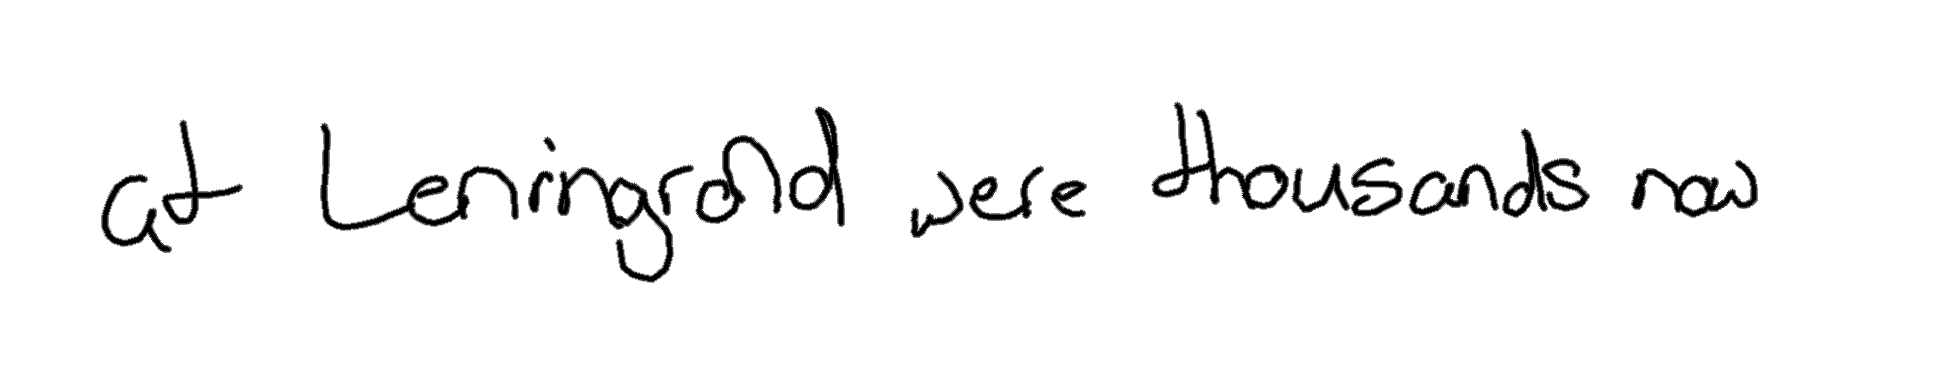 at Leningrand were thousands now